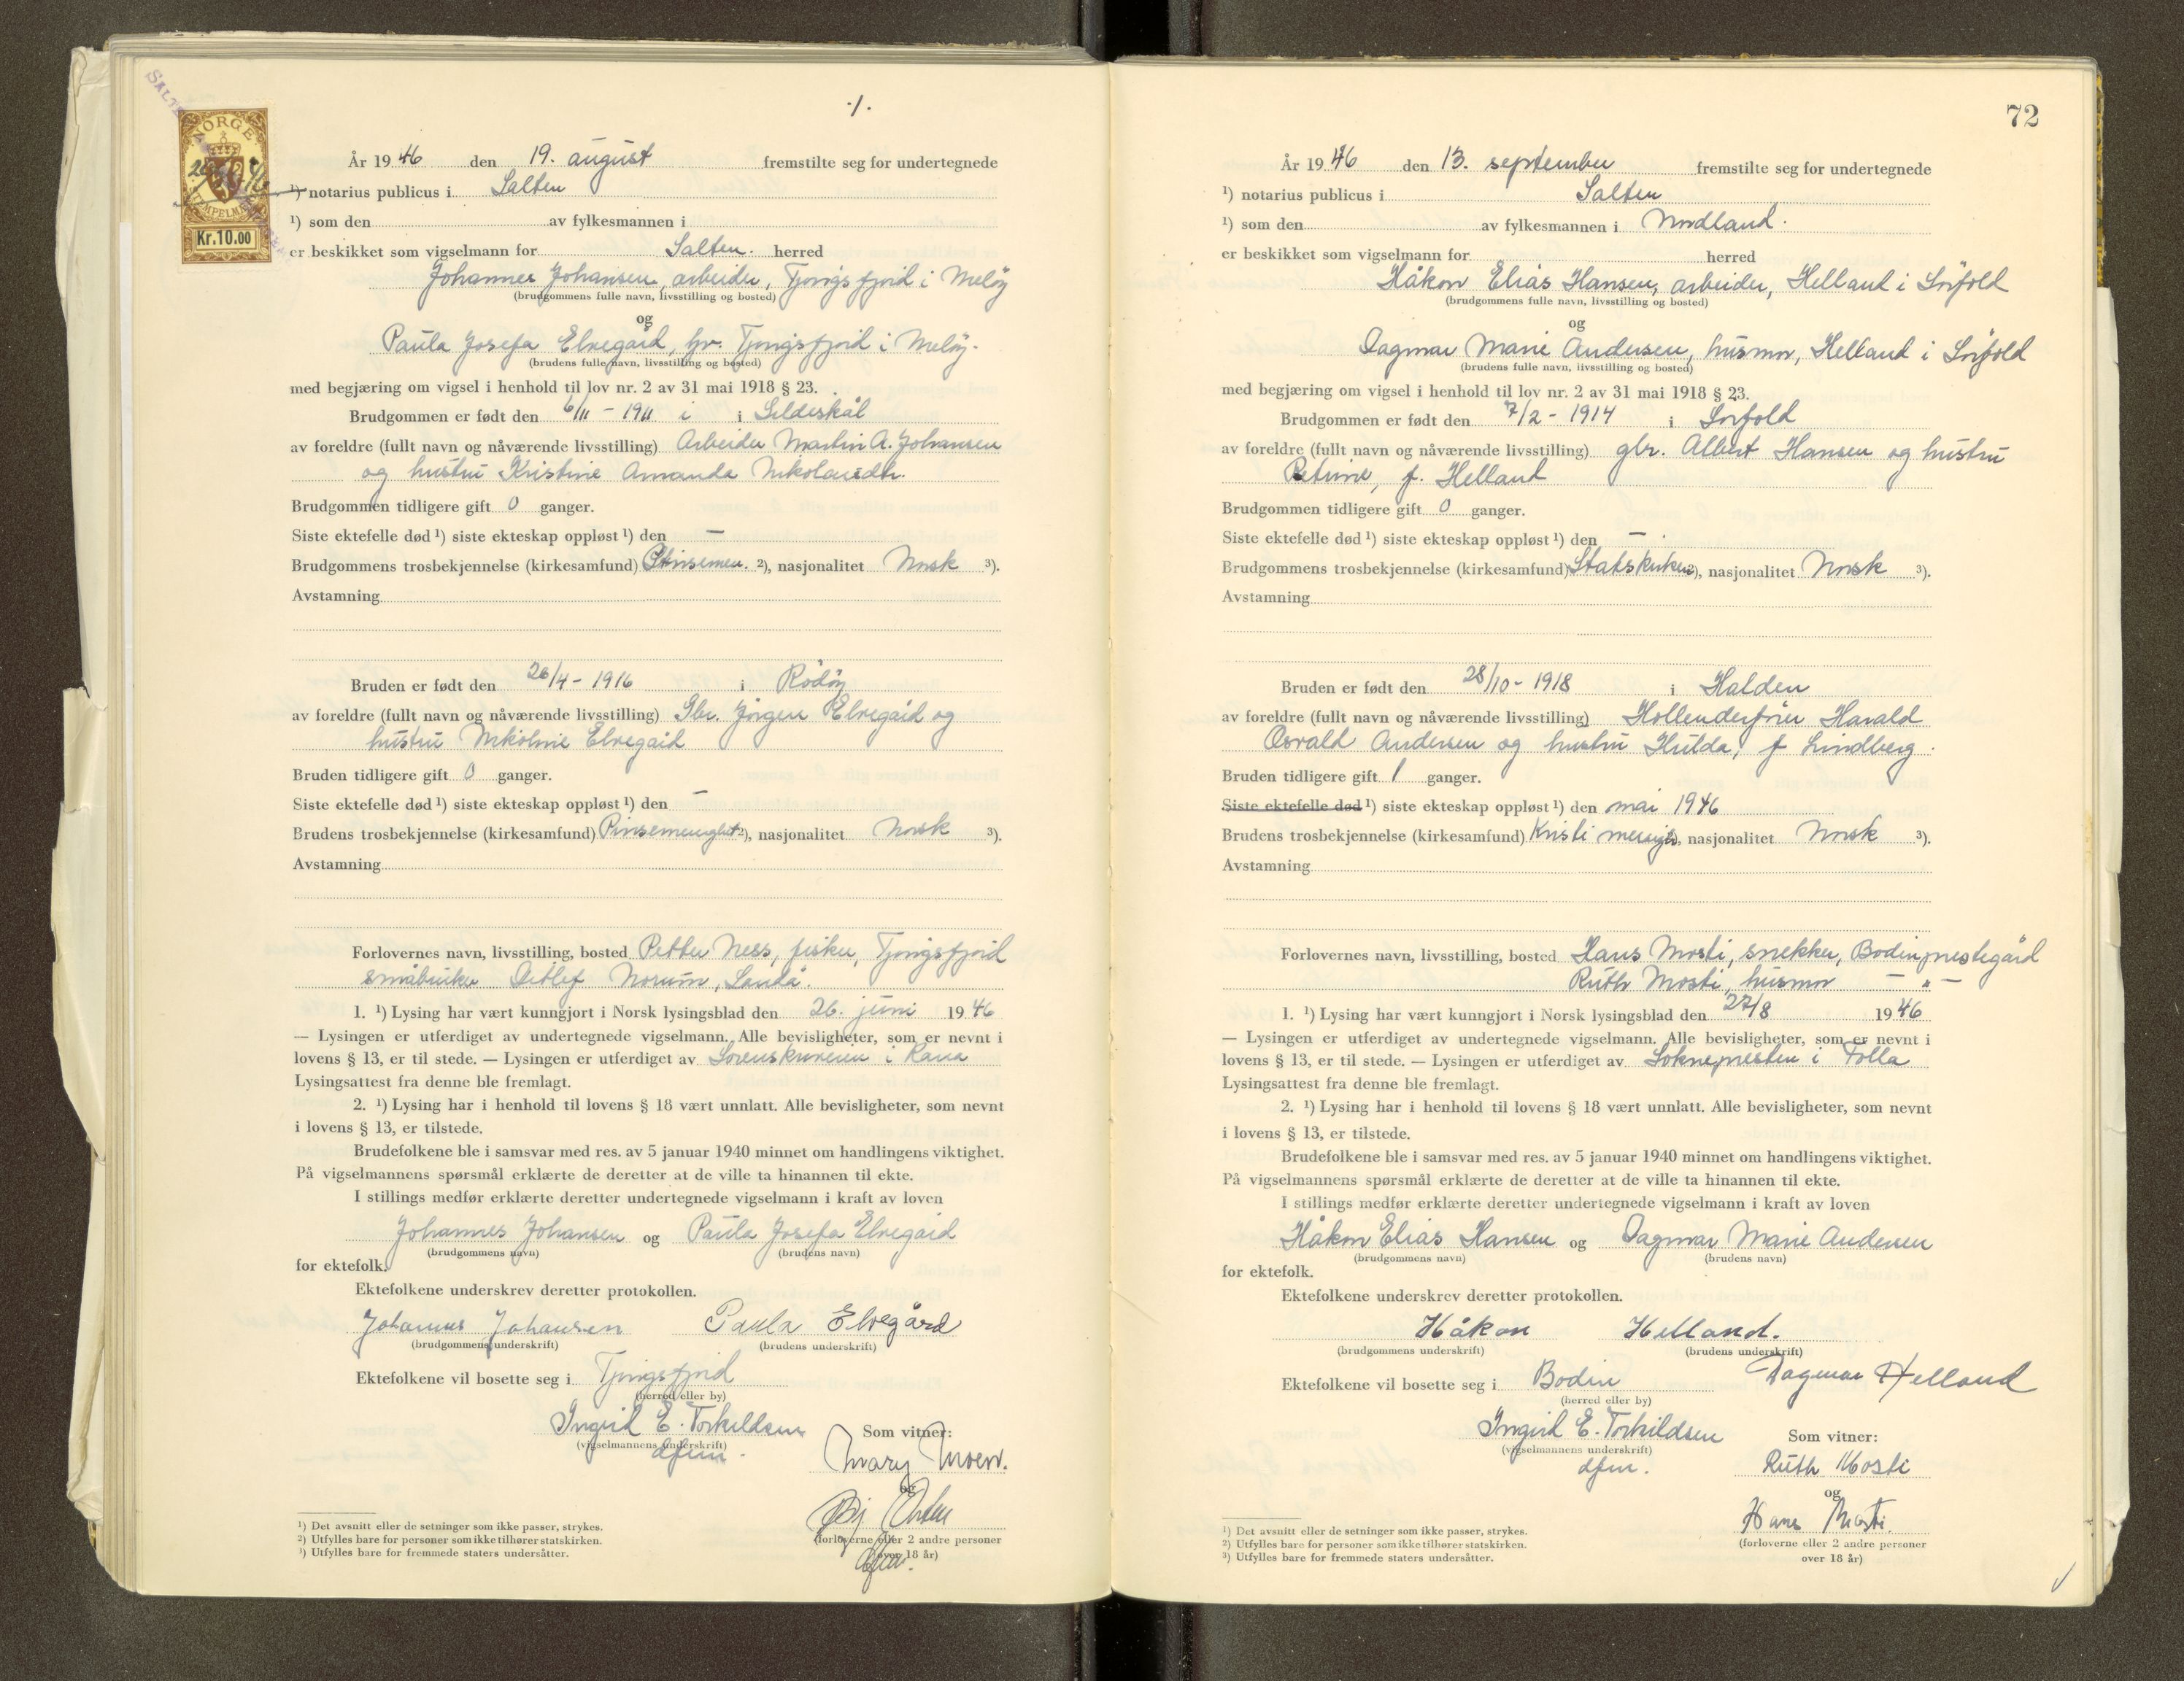 ./.
NORGE
STEMPELMERKE
Kr.10.00
År 1946 den 19. august fremstilte seg for undertegnede
¹) notarius publicus i Salten
¹) som den av fylkesmannen i
er beskikket som vigselmann for Salten. herred
Johannes Johansen, arbeider, Tjongsfjord i Meløy
(brudgommens fulle navn, livsstilling og bosted)
og
Paula Josefa Elvegård, hr. Tjongsfjord i Meløy.
(brudens fulle navn, livsstilling og bosted)
med begjæring om vigsel i henhold til lov nr. 2 av 31 mai 1918 § 23.
Brudgommen er født den 6/11 - 1911 i i Gildeskål
av foreldre (fullt navn og nåværende livsstilling) Arbeider Martin A. Johansen
og hustru Kristine Amanda Nikolaisdtr.
Brudgommen tidligere gift 0 ganger.
Siste ektefelle død ¹) siste ekteskap oppløst ¹) den —
Brudgommens trosbekjennelse (kirkesamfund) Pinsemen. ²), nasjonalitet Norsk ³).
Avstamning
Bruden er født den 26/4 - 1916 i Rödöy
av foreldre (fullt navn og nåværende livsstilling) Gbr. Jörgen Elvegård og
hustru Nikoline Elvegård
Bruden tidligere gift 0 ganger.
Siste ektefelle død ¹) siste ekteskap oppløst ¹) den —
Brudens trosbekjennelse (kirkesamfund) Pinsemenighet ²), nasjonalitet Norsk ³).
Avstamning
Forlovernes navn, livsstilling, bosted Petter Ness, fisker, Tjongsfjord
småbruker Detlef Norum, Sandå.
1. ¹) Lysing har vært kunngjort i Norsk lysingsblad den 26. juni 1946
— Lysingen er utferdiget av undertegnede vigselmann. Alle bevisligheter, som er nevnt i
lovens § 13, er til stede. — Lysingen er utferdiget av Sorenskriveren i Rana
Lysingsattest fra denne ble fremlagt.
2. ¹) Lysing har i henhold til lovens § 18 vært unnlatt. Alle bevisligheter, som nevnt
i lovens § 13, er tilstede.
Brudefolkene ble i samsvar med res. av 5 januar 1940 minnet om handlingens viktighet.
På vigselmannens spørsmål erklærte de deretter at de ville ta hinannen til ekte.
I stillings medfør erklærte deretter undertegnede vigselmann i kraft av loven
Johannes Johansen og Paula Josefa Elvegård
(brudgommens navn) (brudens navn)
for ektefolk.
Ektefolkene underskrev deretter protokollen.
Johannes Johansen Paula Elvegård
(brudgommens underskrift) (brudens underskrift)
Ektefolkene vil bosette seg i Tjongsfjord
(herred eller by)
Ingrid E. Torkildsen
(vigselmannens underskrift)
dfm.
Som vitner:
Mary Moen.
og
(forloverne eller 2 andre personer
over 18 år)
¹) Det avsnitt eller de setninger som ikke passer, strykes.
²) Utfylles bare for personer som ikke tilhører statskirken.
³) Utfylles bare for fremmede staters undersåtter.
72
År 1946 den 13. september fremstilte seg for undertegnede
¹) notarius publicus i Salten
¹) som den av fylkesmannen i Nordland.
er beskikket som vigselmann for herred
Håkon Elias Hansen, arbeider, Helland i Sörfold
(brudgommens fulle navn, livsstilling og bosted)
og
Dagmar Marie Andersen, husmor, Helland i Sörfold
(brudens fulle navn, livsstilling og bosted)
med begjæring om vigsel i henhold til lov nr. 2 av 31 mai 1918 § 23.
Brudgommen er født den 7/2 - 1914 i Sörfold
av foreldre (fullt navn og nåværende livsstilling) gbr. Albert Hansen og hustru
Petrine, f. Helland
Brudgommen tidligere gift 0 ganger.
Siste ektefelle død ¹) siste ekteskap oppløst ¹) den —.
Brudgommens trosbekjennelse (kirkesamfund) Statskirken ²), nasjonalitet Norsk ³).
Avstamning
Bruden er født den 28/10 - 1918 i Halden
av foreldre (fullt navn og nåværende livsstilling) Hollenderförer Harald
Osvald Andersen og hustru Hulda, f Lindberg.
Bruden tidligere gift 1 ganger.
Siste ektefelle død ¹) siste ekteskap oppløst ¹) den mai 1946
Brudens trosbekjennelse (kirkesamfund) Kristi menigh ²), nasjonalitet Norsk ³).
Avstamning
Forlovernes navn, livsstilling, bosted Hans Mosti, snekker, Bodin prestegård
Ruth Mosti, husmor — " —
1. ¹) Lysing har vært kunngjort i Norsk lysingsblad den 27/8 1946
— Lysingen er utferdiget av undertegnede vigselmann. Alle bevisligheter, som er nevnt i
lovens § 13, er til stede. — Lysingen er utferdiget av Soknepresten i Folla
Lysingsattest fra denne ble fremlagt.
2. ¹) Lysing har i henhold til lovens § 18 vært unnlatt. Alle bevisligheter, som nevnt
i lovens § 13, er tilstede.
Brudefolkene ble i samsvar med res. av 5 januar 1940 minnet om handlingens viktighet.
På vigselmannens spørsmål erklærte de deretter at de ville ta hinannen til ekte.
I stillings medfør erklærte deretter undertegnede vigselmann i kraft av loven
Håkon Elias Hansen og Dagmar Marie Andersen
(brudgommens navn) (brudens navn)
for ektefolk.
Ektefolkene underskrev deretter protokollen.
Håkon Helland.
(brudgommens underskrift) (brudens underskrift)
Dagmar Helland
Ektefolkene vil bosette seg i Bodin
(herred eller by)
Ingrid E. Torkildsen
(vigselmannens underskrift)
dfm.
Som vitner:
Ruth Mosti
og
Hans Mosti.
(forloverne eller 2 andre personer
over 18 år)
¹) Det avsnitt eller de setninger som ikke passer, strykes.
²) Utfylles bare for personer som ikke tilhører statskirken.
³) Utfylles bare for fremmede staters undersåtter.